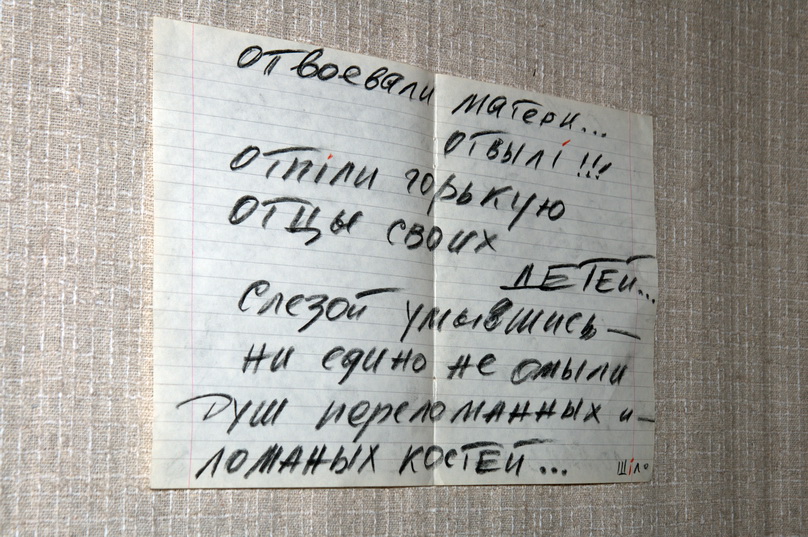 отвоевали матери...
отвылі!!!
отпіли горькую
отцы своих
ДЕТЕЙ...
слезой умывшись –
ни едино не омыли
душ переломанных и –
ломаных костей...
шіло